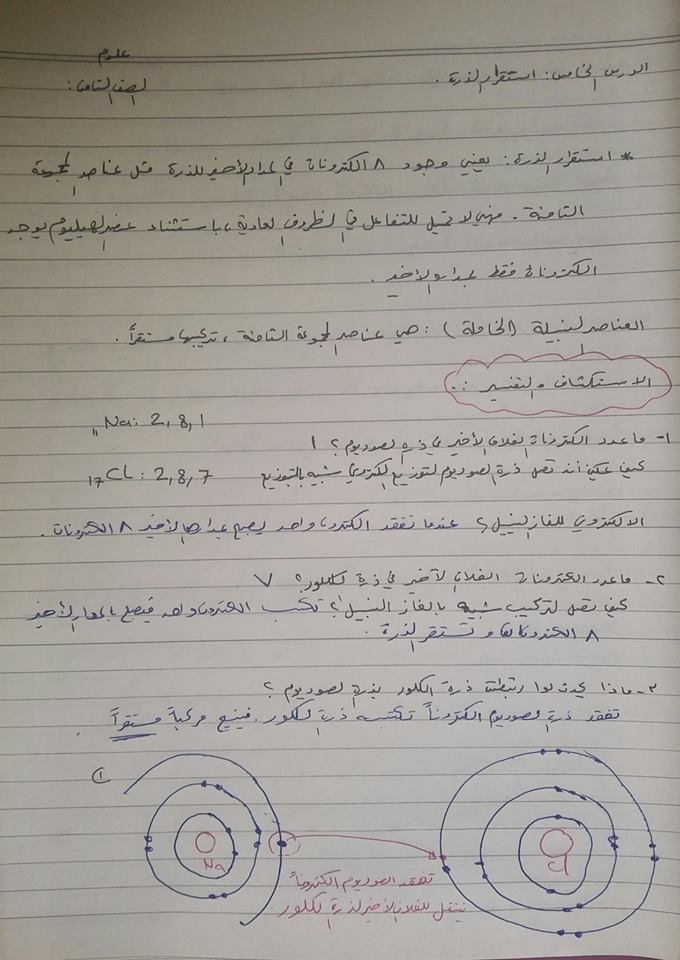 علوم
الدرس الخامس: استقرار الذرة.
الصف الثامن:
* استقرار الذرة: يعني وجود ٨ الكترونات في المدار الأخير للذرة مثل عناصر المجموعة
الثامنة. فهي لا تميل للتفاعل في الظروف العادية، باستثناء عنصر الهيليوم يوجد
الكترونان فقط بمداره الأخير.
العناصر النبيلة (الخاملة): هي عناصر المجموعة الثامنة، تركيبها مستقراً.
الاستكشاف والتفسير:.
١- ما عدد الكترونات الغلاف الأخير في ذرة الصوديوم؟ ١
₁₁Na: 2, 8, 1
كيف يمكن أن تصل ذرة الصوديوم لتوزيع الكتروني شبيه بالتوزيع
₁₇Cl: 2, 8, 7
الالكتروني للغاز النبيل؟ عندما تفقد الكترون واحد يصبح بمدارها الأخير ٨ الكترونات.
٢- ما عدد الكترونات الغلاف الأخير في ذرة الكلور؟ ٧
كيف تصل لتركيب شبيه بالغاز النبيل؟ تكتسب الكترون واحد فيصبح بالمدار الأخير
٨ الكترونات وتستقر الذرة.
٣- ماذا يحدث لو ارتبطت ذرة الكلور بذرة الصوديوم؟
تفقد ذرة الصوديوم الكتروناً تكتسبه ذرة الكلور. فينتج مركباً مستقراً.
①
Na
Cl
تفقد الصوديوم الكتروناً
ينتقل للغلاف الأخير لذرة الكلور